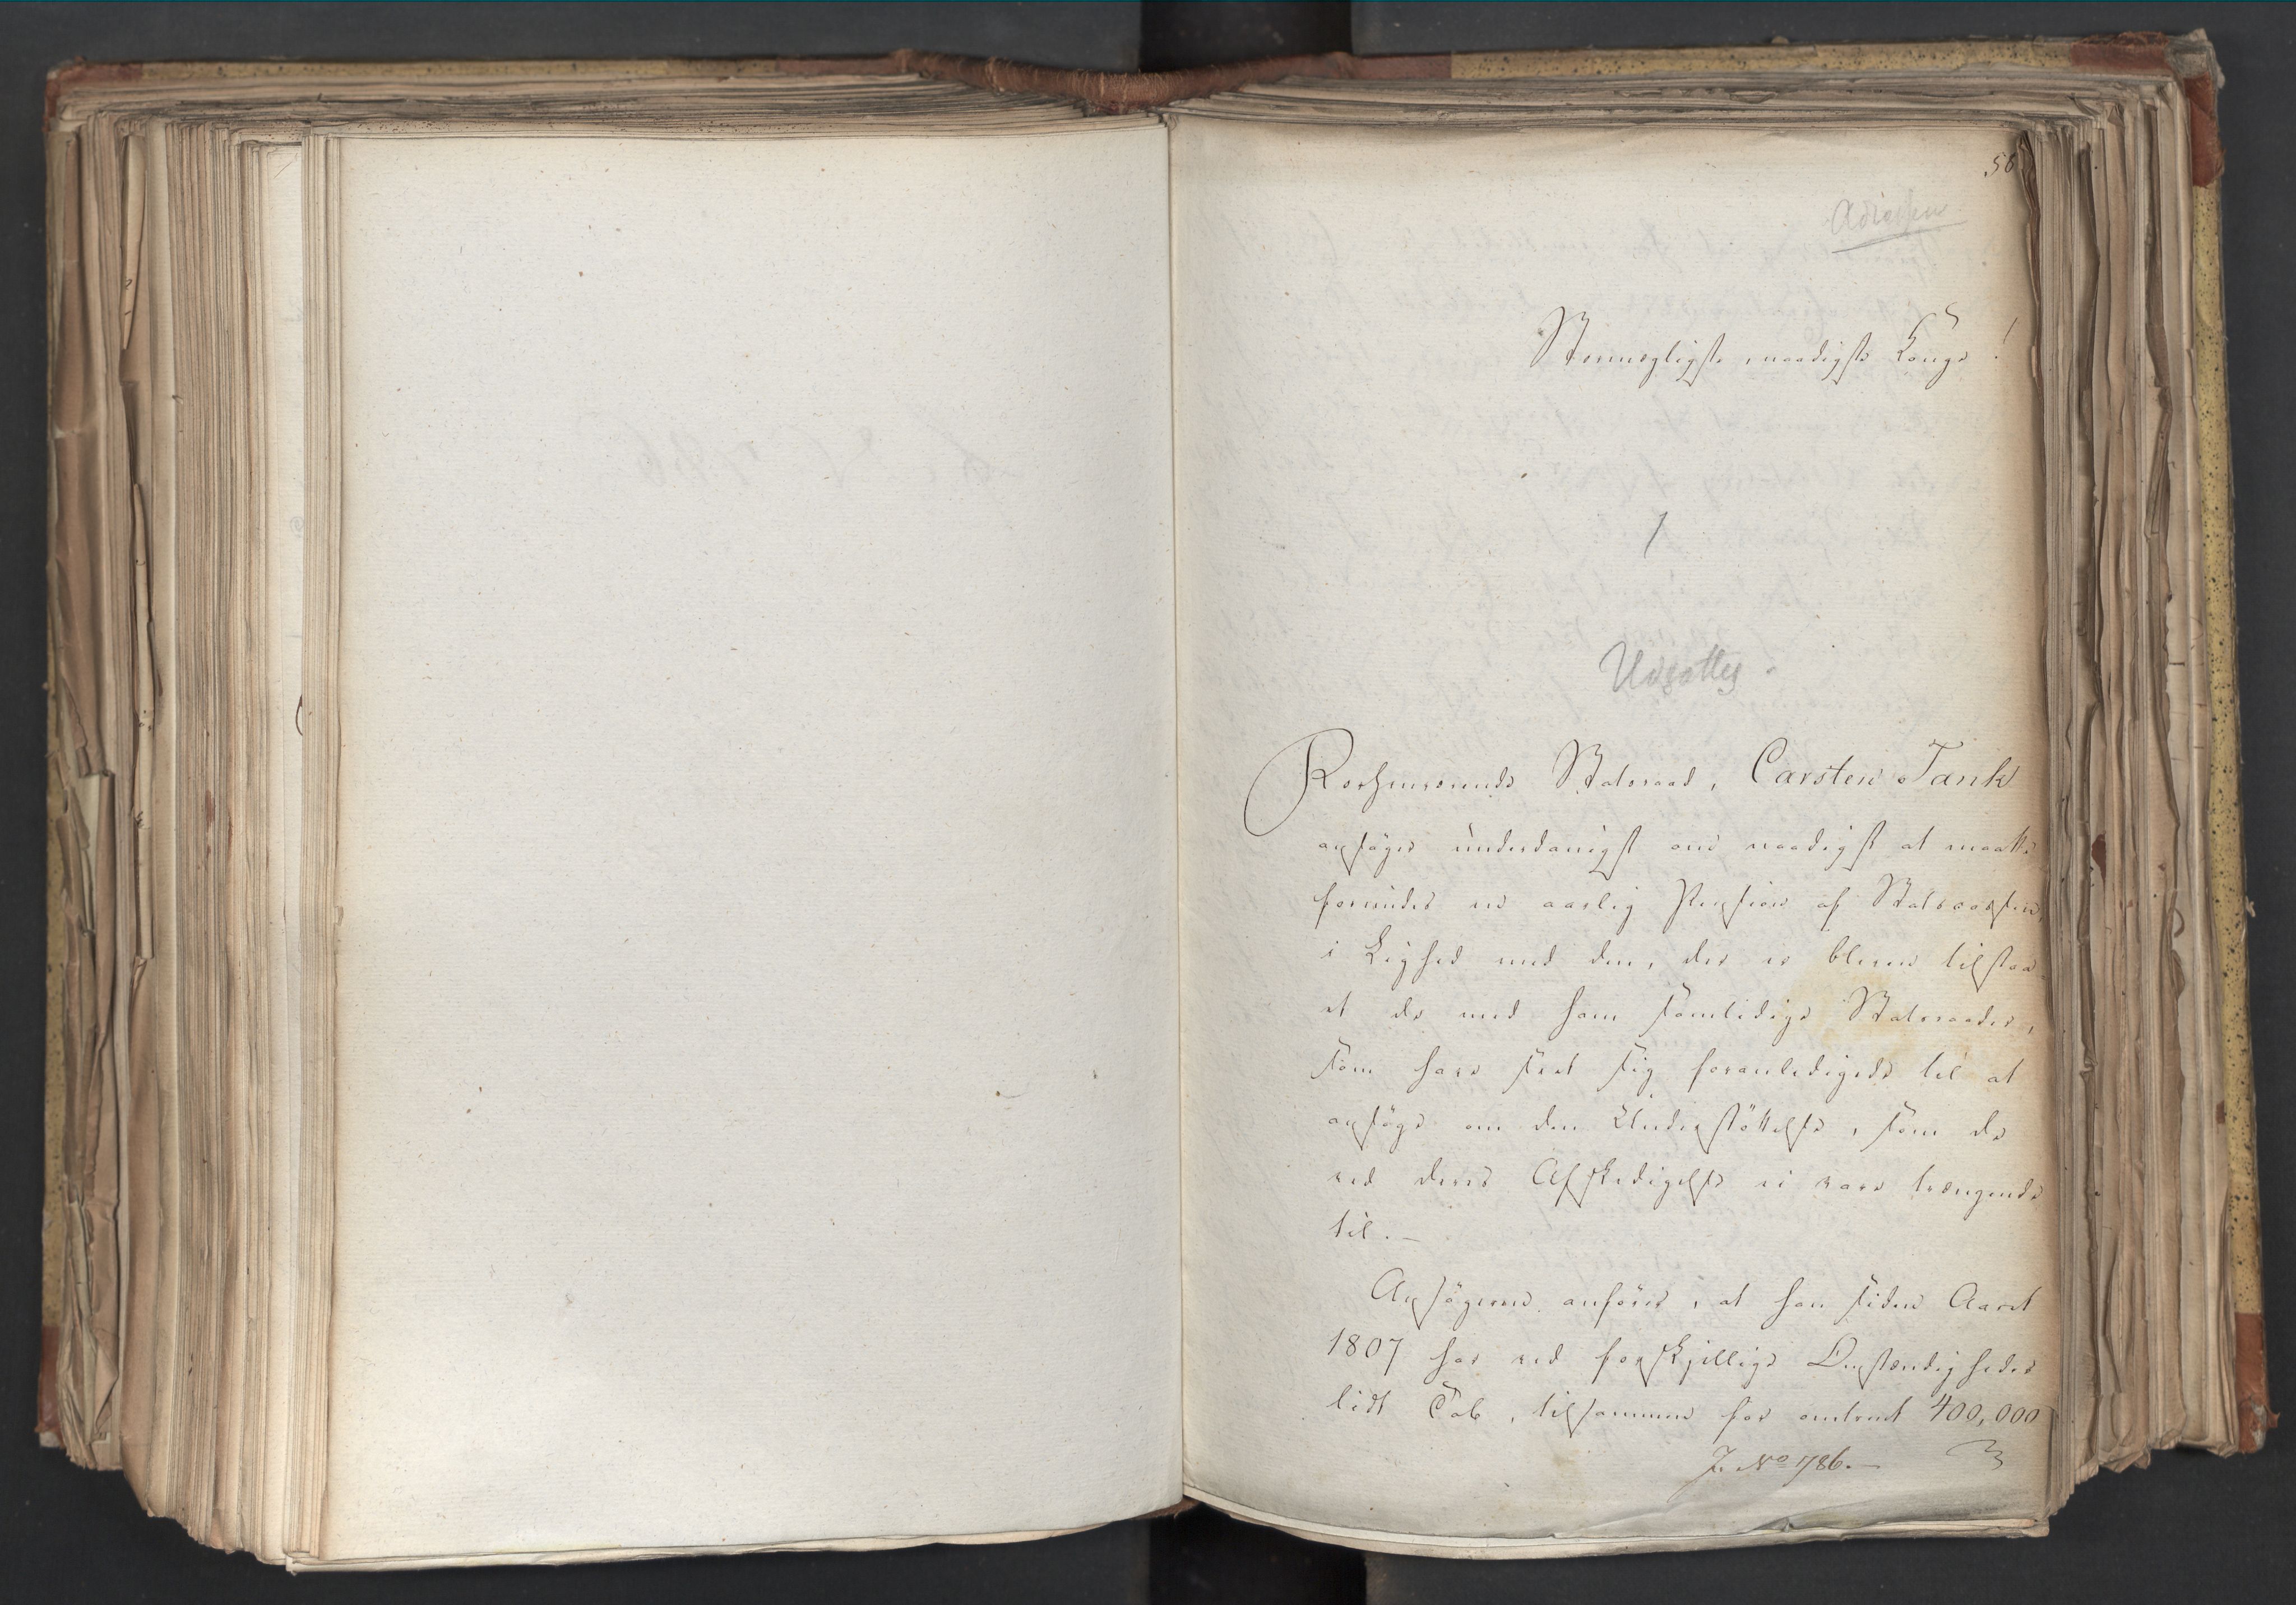 56
Stormægtigste, naadigste Konge!
/
Udsættes.
Forhenværende Statsraad, Carsten Tank
ansøger underdanigst om naadigst at maatte
forundes en aarlig Pension af Statscassen,
i Lighed med den, der er bleven tilstaa-
et de med ham samtidige Statsraader,
som have seet sig foranledigede til at
ansøge om den Understöttelse, som de
ved deres Afskedigelse ei vare trængende
til. –
Ansögeren anförer, at han siden Aaret
1807 har ved forskjellige Omstændigheder
lidt Tab, tilsammen for omtrent 400,000
J. No 786. –